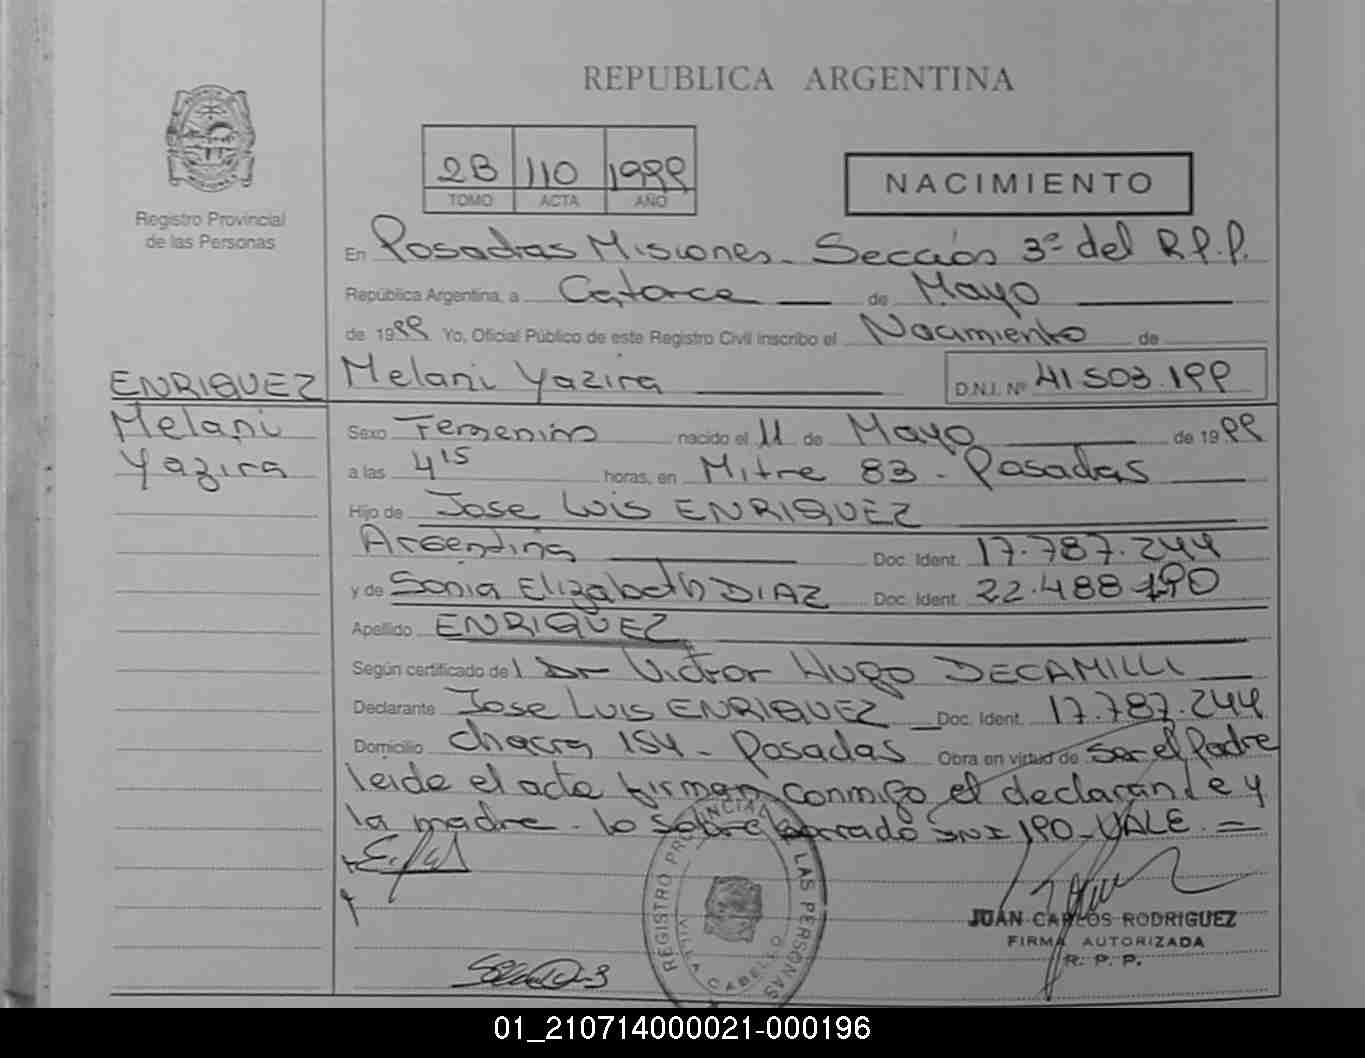 REPUBLICA ARGENTINA
2B 110 1999
TOMO ACTA AÑO
NACIMIENTO
Registro Provincial
de las Personas
En Posadas Misiones - Sección 3ª del R.P.P.
República Argentina, a Catorce de Mayo
de 1999 Yo, Oficial Público de este Registro Civil inscribo el Nacimiento de
ENRIQUEZ Melani Yazira D.N.I. Nº 41.503.199
Melani
Yazira
Sexo Femenino nacido el 11 de Mayo de 1999
a las 4 15 horas, en Mitre 83 - Posadas
Hijo de Jose Luis ENRIQUEZ
Argentina Doc. Ident. 17.787.244
y de Sonia Elizabeth DIAZ Doc. Ident. 22.488.190
Apellido ENRIQUEZ
Según certificado del Dr Victor Hugo DECAMILLI
Declarante Jose Luis ENRIQUEZ Doc. Ident. 17.787.244
Domicilio chacra 154 - Posadas Obra en virtud de Ser el Padre
leida el acta firman conmigo el declarante y
la madre - lo sobre borrado DNI 190 - VALE. =
REGISTRO PROVINCIAL DE LAS PERSONAS
VILLA CABELLO
JUAN CARLOS RODRIGUEZ
FIRMA AUTORIZADA
R. P. P.
01_210714000021-000196